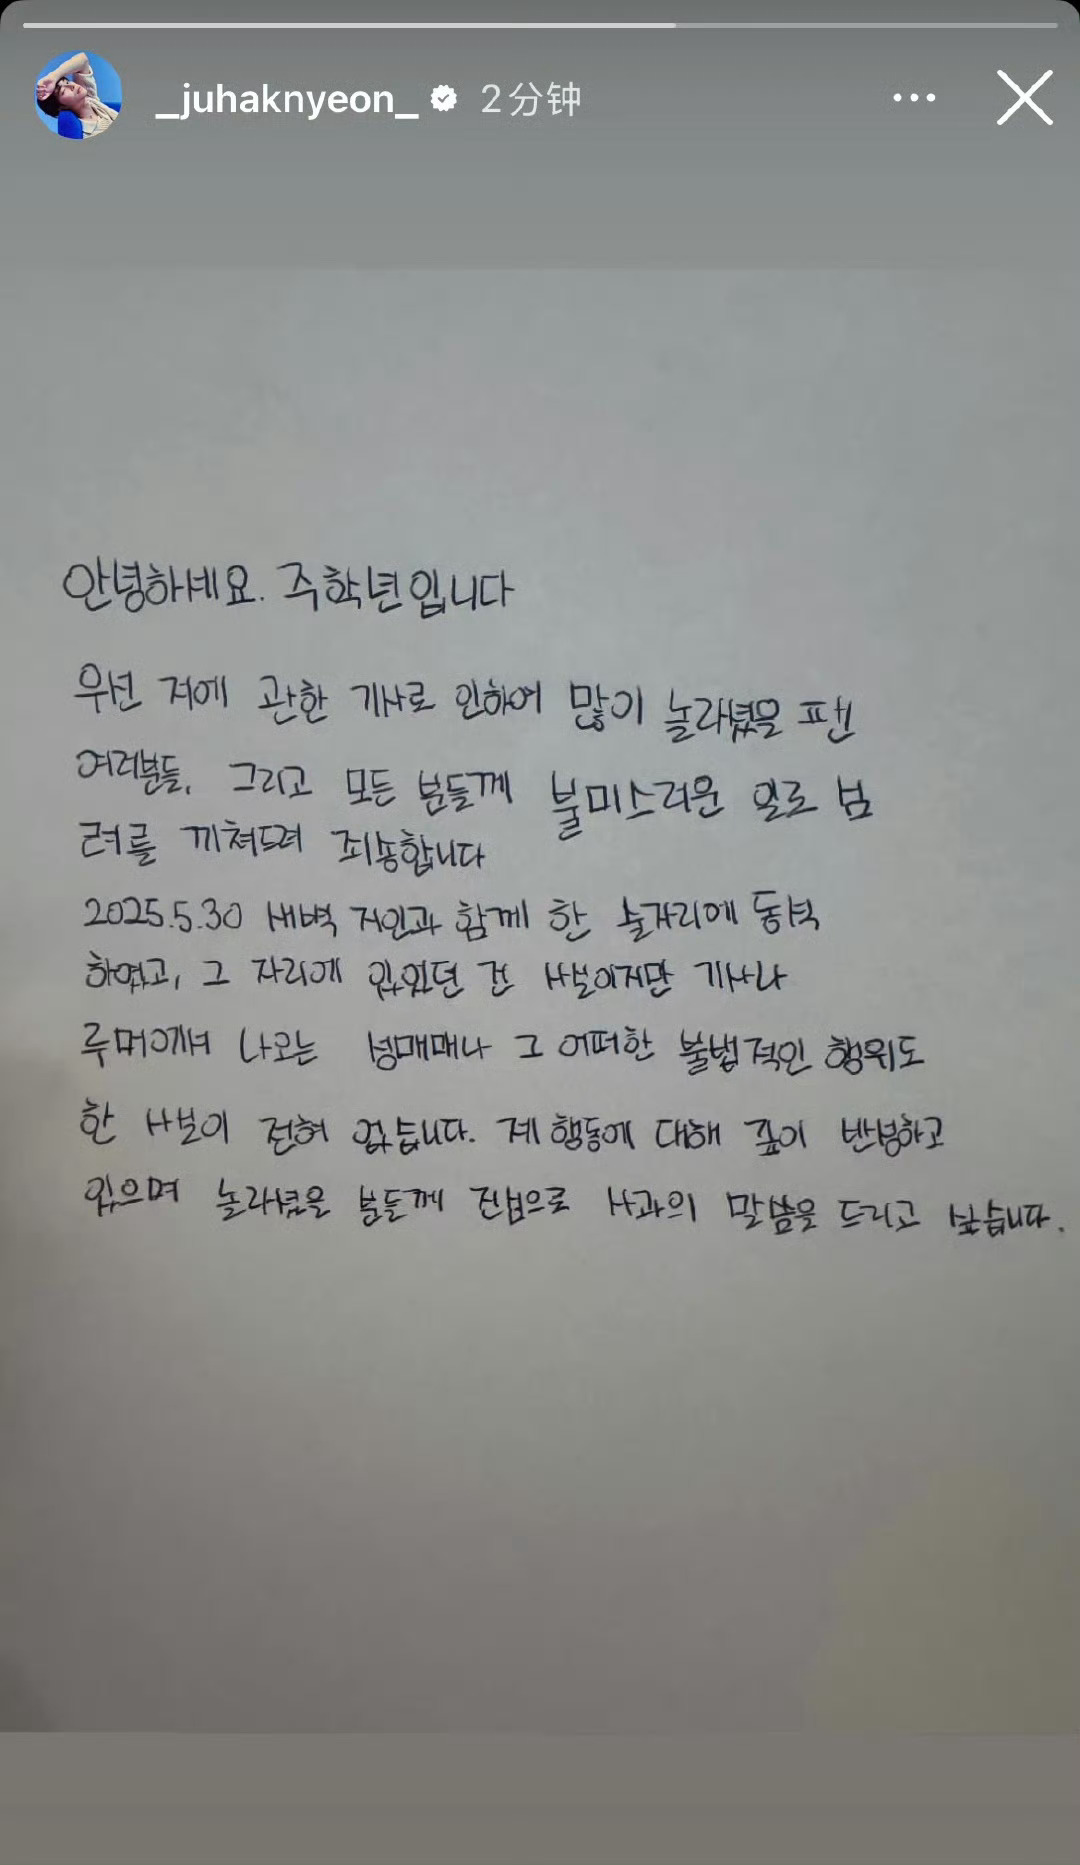 _juhaknyeon_ 2分钟
안녕하세요. 주학년입니다
우선 저에 관한 기사로 인하여 많이 놀라셨을 팬
여러분들, 그리고 모든 분들께 불미스러운 일로 심
려를 끼쳐드려 죄송합니다
2025.5.30 새벽 지인과 함께 한 술자리에 동석
하였고, 그 자리에 있었던 건 사실이지만 기사나
루머에서 나오는 성매매나 그 어떠한 불법적인 행위도
한 사실이 전혀 없습니다. 제 행동에 대해 깊이 반성하고
있으며 놀라셨을 분들께 진심으로 사과의 말씀을 드리고 싶습니다.